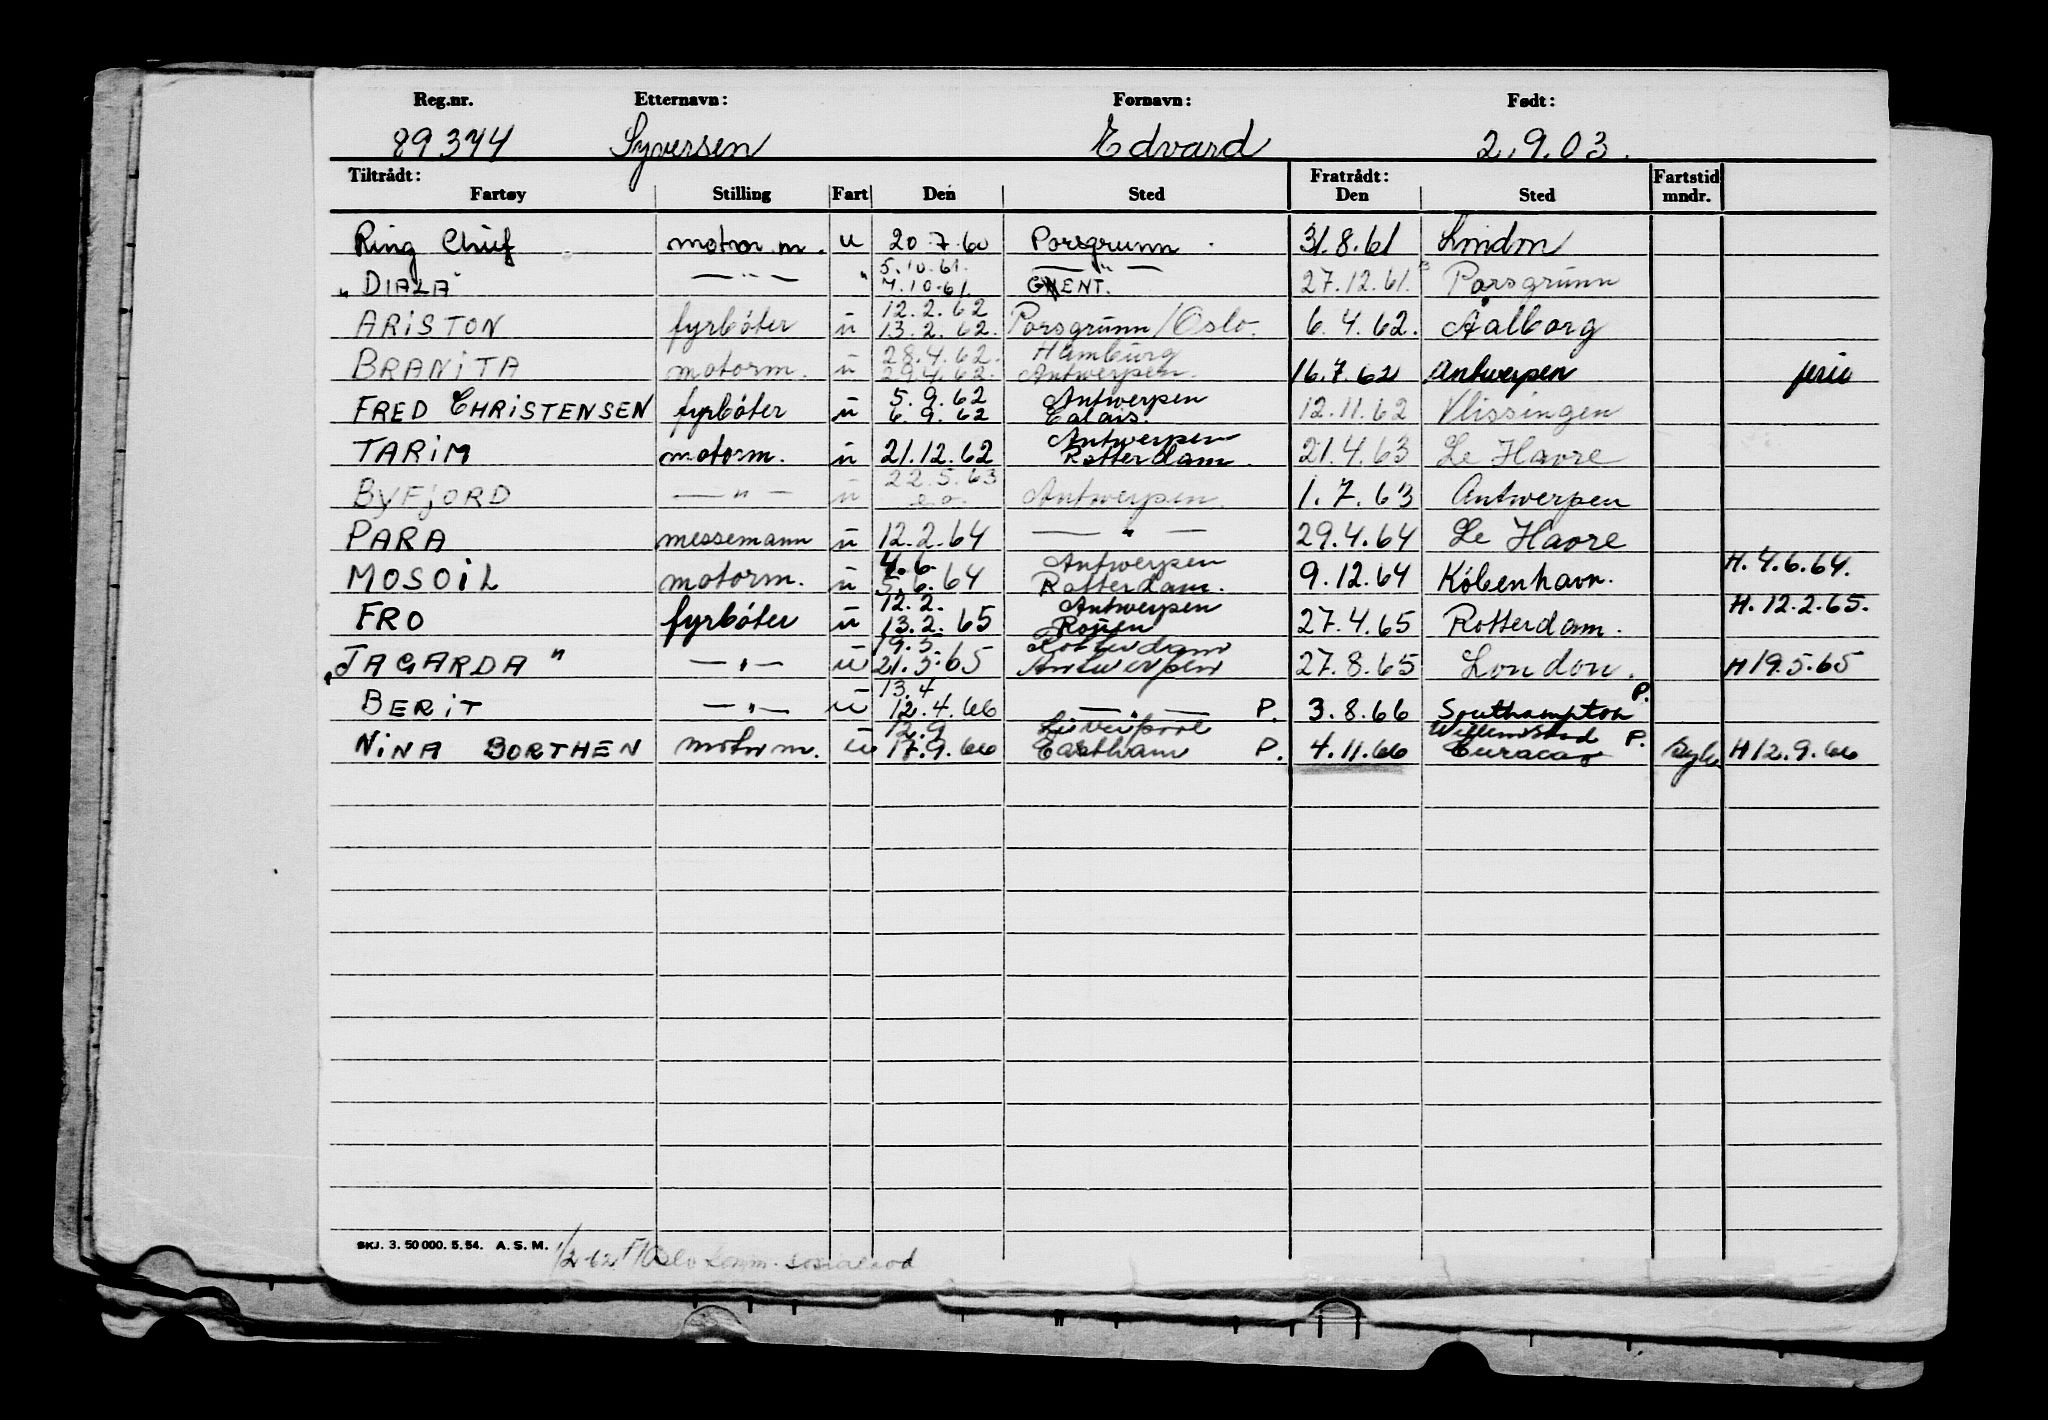 Reg.nr. Etternavn: Fornavn: Født:
89344 Syversen Edvard 2.9.03.
Tiltrådt: Fratrådt: Fartstid
Fartøy Stilling Fart Den Sted Den Sted mndr.
Ring Chief motorm. u 20.7.60 Porsgrunn 31.8.61 London
5.10.61. — " —
"DIALA" — " — " 7.10.61. GHENT. 27.12.61. Porsgrunn
12.2.62
ARISTON fyrbøter u 13.2.62. Porsgrunn/Oslo. 6.4.62. Aalborg
28.4.62. Hamburg
BRANITA motorm. u 29.4.62. Antwerpen. 16.7.62 Antwerpen ferie
5.9.62 Antwerpen
FRED CHRISTENSEN fyrbøter u 6.9.62 Calais. 12.11.62 Vlissingen
Antwerpen
TARIM motorm. u 21.12.62 Rotterdam. 21.4.63 Le Havre
22.5.63
BYFJORD — " — u s.d. Antwerpen. 1.7.63 Antwerpen
PARA messemann u 12.2.64 — " — 29.4.64 Le Havre
4.6. Antwerpen H. 4.6.64.
MOSOIL motorm. u 5.6.64 Rotterdam. 9.12.64 København.
12.2. Antwerpen H. 12.2.65.
FRO fyrbøter u 13.2.65 Rouen 27.4.65 Rotterdam.
19.5 Rotterdam
"JAGARDA" — " — u 21.5.65 Antwerpen 27.8.65 London. H 19.5.65
13.4 P.
BERIT — " — u 12.4.66 — " — P. 3.8.66 Southampton
12.9 Liverpool Willemstad
NINA BORTHEN motorm. u 17.9.66 Eastham P. 4.11.66 Curacao P. Syk H 12.9.66
SKJ. 3. 50 000. 5. 54. A. S. M. 1/2-62 Oslo komm. sosialråd